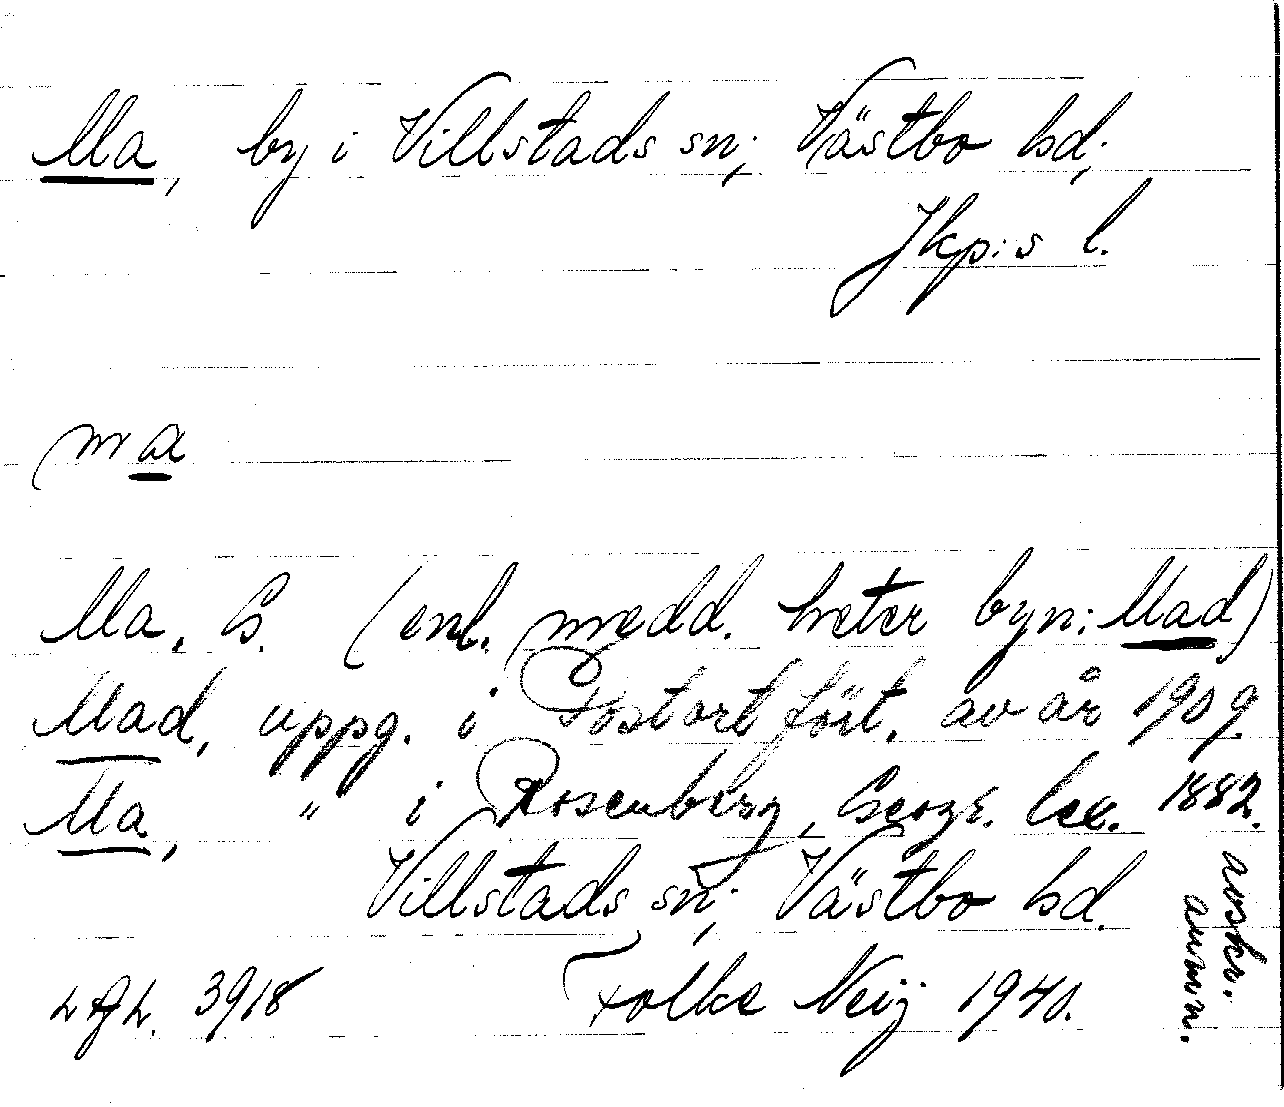 Ma, by i Villstads sn; Västbo hd;
Jkp:s l.
ma
Ma, G. (enl. medd. heter byn: Mad)
Mad, uppg. i Postort fört. av år 1909.
Ma, " i Rosenberg, Geogr. lex. 1882.
Villstads sn; Västbo hd.
LAL. 3918 Folke Neij 1940.
avskr.
anm.